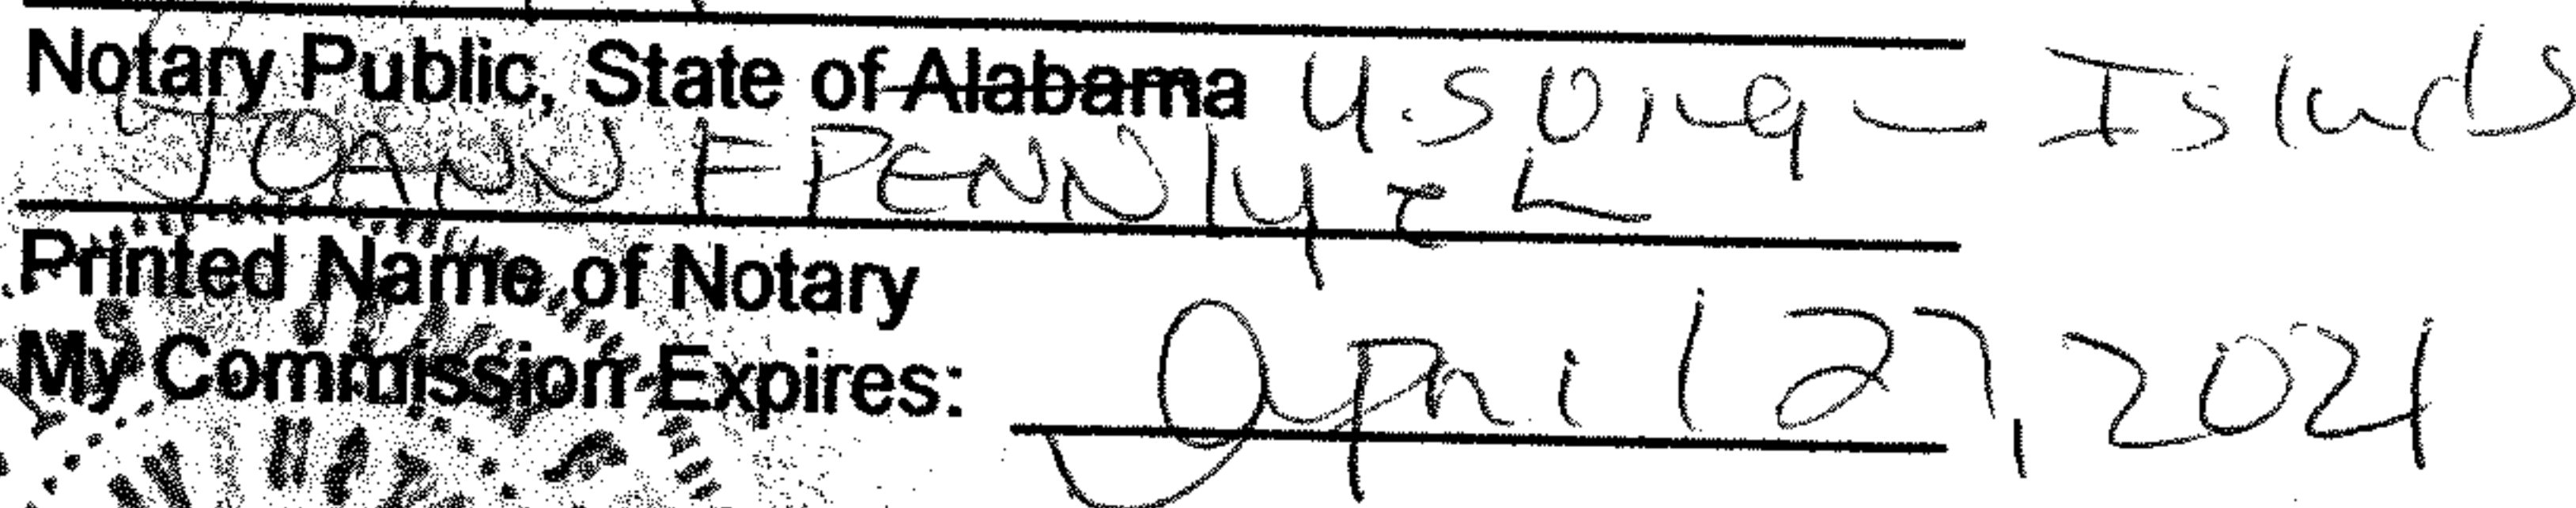 Notary Public, State of Alabama U.S Virgin Islands
JOANN E PENN
Printed Name of Notary
My Commission Expires: April 27, 2021